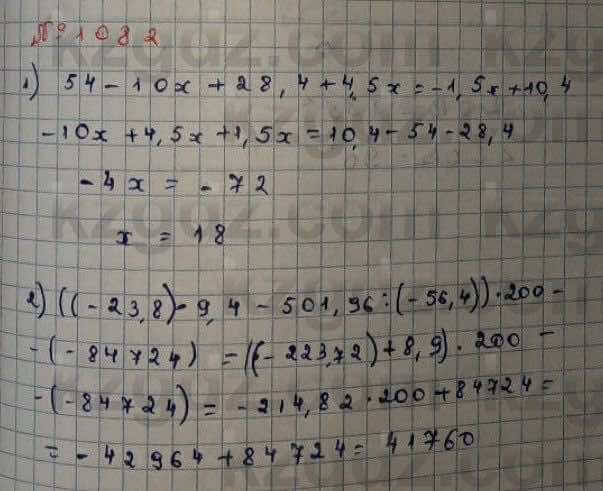 № 1082
1) 54 - 10x + 28,4 + 4,5x = -1,5x + 10,4
-10x + 4,5x + 1,5x = 10,4 - 54 - 28,4
-4x = -72
x = 18
2) ((-23,8) · 9,4 - 501,96 : (-56,4)) · 200 -
-(-84724) = ((-223,72) + 8,9) · 200 -
-(-84724) = -214,82 · 200 + 84724 =
= -42964 + 84724 = 41760